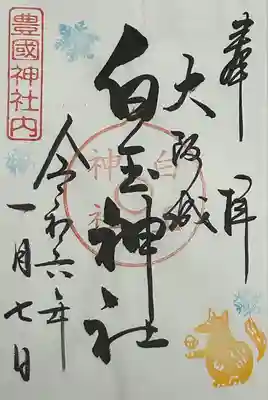 奉拝
大阪城
白玉神社
令和六年
一月七日
豊國神社内
白玉神社